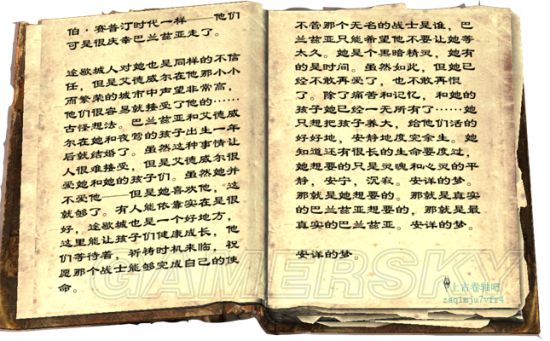 伯·赛普汀时代一样——他们
可是很庆幸巴兰兹亚走了。
途歇城人对她也是同样的不信
任，但是艾德威尔在他那小小
而繁荣的城市中声望非常高，
他们很容易就接受了他的……
古怪想法。巴兰兹亚和艾德威
尔在她和夜莺的孩子出生一年
后就结婚了。虽然这种事情让
人很难接受，但是艾德威尔很
爱她和她的孩子们。虽然她并
不爱他——但是她喜欢他，这
就够了。有人能依靠实在是很
好，途歇城也是一个好地方，
这里能让孩子们健康成长，他
们等待着，祈祷时机来临，祝
愿那个战士能够完成自己的使
命。
不管那个无名的战士是谁，巴
兰兹亚只能希望他不要让她等
太久。她是个黑暗精灵，她有
的是时间。虽然如此，但她已
经不敢再爱了，也不敢再恨
了。除了痛苦和记忆，和她的
孩子她已经一无所有了……她
只想把孩子养大，给他们活的
好好地，安静地度完余生。她
知道还有很长的生命要度过，
她想要的只是灵魂和心灵的平
静，安宁，沉寂。安详的梦。
那就是她想要的。那就是真实
的巴兰兹亚想要的。那就是最
真实的巴兰兹亚。安详的梦。
安详的梦。
上古卷轴吧
zaq1mju7vfr4
GAMERSKY